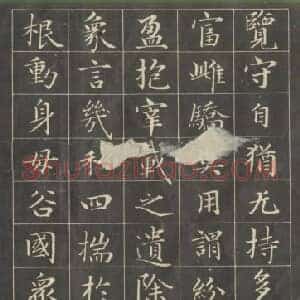 覽守自猶无持多
富雌驕用謂紛
盈抱宰戰之遺除
象言幾和四揣於
根動身毋谷國衆